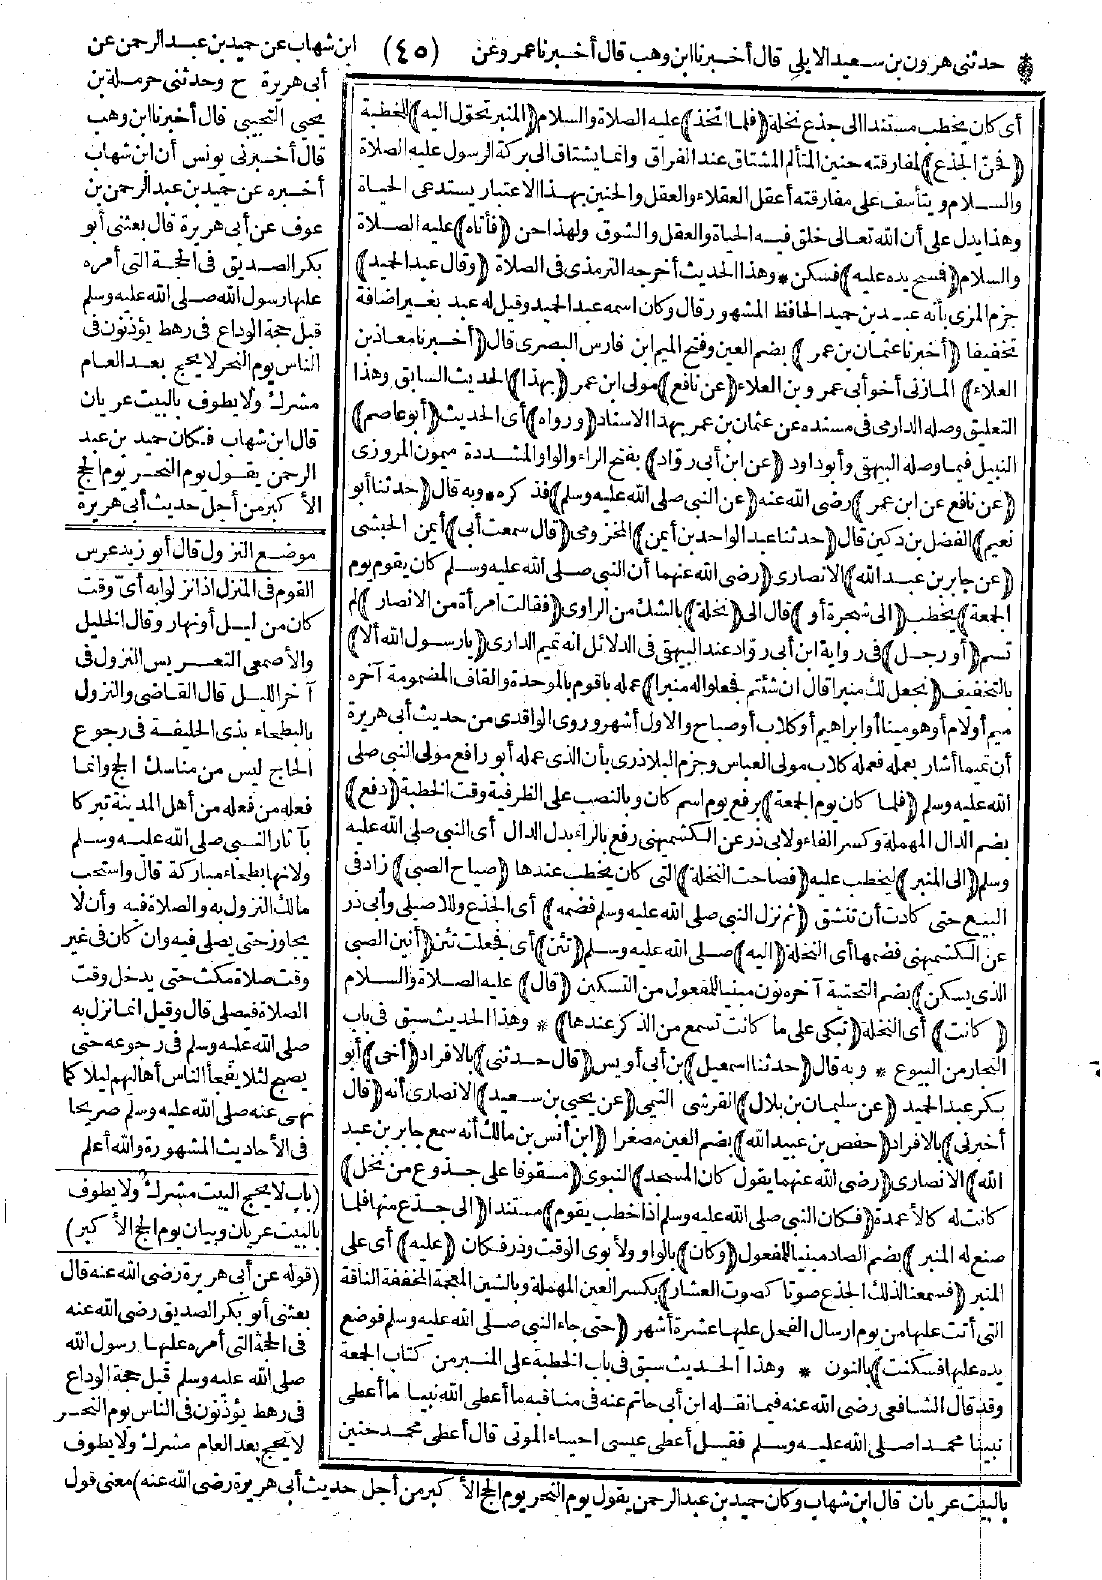 حدثني هرون بن سعيد الايلي قال أخبرنا ابن وهب قال أخبرنا عمرو عن
(٤٥)
ابن شهاب عن حميد بن عبد الرحمن عن
أبي هريرة ح وحدثني حرملة بن
يحيى التجيبي قال أخبرنا ابن وهب
قال أخبرني يونس أن ابن شهاب
أخبره عن حميد بن عبد الرحمن بن
عوف عن أبي هريرة قال بعثني أبو
بكر الصديق في الحجة التي أمره
عليها رسول الله صلى الله عليه وسلم
قبل حجة الوداع في رهط يؤذنون في
الناس يوم النحر لا يحج بعد العام
مشرك ولا يطوف بالبيت عريان
قال ابن شهاب فكان حميد بن عبد
الرحمن يقول يوم النحر يوم الحج
الأكبر من أجل حديث أبي هريرة
أي كان يخطب مستندا الى جذع نخلة (فلما اتخذ) عليه الصلاة والسلام (المنبر تحول اليه) للخطبة
(فحن الجذع) لمفارقته حنين المتألم المشتاق عند الفراق وانما يشتاق الى بركة الرسول عليه الصلاة
والسلام ويتأسف على مفارقته أعقل العقلاء والعقل والحنين بهذا الاعتبار يستدعى الحياة
وهذا يدل على أن الله تعالى خلق فيه الحياة والعقل والشوق ولهذا حن (فأتاه) عليه الصلاة
والسلام (فمسح يده عليه) فسكن * وهذا الحديث أخرجه الترمذي في الصلاة (وقال عبد الحميد)
جزم المزي بأنه عبد بن حميد الحافظ المشهور قال وكان اسمه عبد الحميد وقيل له عبد بغير اضافة
تخفيفا (أخبرنا عثمان بن عمر) بضم العين وفتح الميم ابن فارس البصري قال (أخبرنا معاذ بن
العلاء) المازني أخو أبي عمرو بن العلاء (عن نافع) مولى ابن عمر (بهذا) الحديث السابق وهذا
التعليق وصله الدارمي في مسنده عن عثمان بن عمر بهذا الاسناد (ورواه) أي الحديث (أبو عاصم)
النبيل فيما وصله البيهقي وأبو داود (عن ابن أبي رواد) بفتح الراء والواو المشددة ميمون المروزي
(عن نافع عن ابن عمر) رضي الله عنه (عن النبي صلى الله عليه وسلم) فذكره * وبه قال (حدثنا أبو
نعيم) الفضل بن دكين قال (حدثنا عبد الواحد بن أيمن) المخزومي (قال سمعت أبي) أيمن الحبشي
(عن جابر بن عبد الله) الانصاري (رضي الله عنهما أن النبي صلى الله عليه وسلم كان يقوم يوم
الجمعة) يخطب (الى شجرة أو) قال الى (نخلة) بالشك من الراوي (فقالت امرأة من الانصار) لم
تسم (أو رجل) في رواية ابن أبي رواد عند البيهقي في الدلائل انه تميم الداري (يا رسول الله ألا)
بالتخفيف (نجعل لك منبرا قال ان شئتم فجعلوا له منبرا) عمله باقوم بالموحدة والقاف المضمومة آخره
ميم أو لام أو هو مينا أو ابراهيم أو كلاب أو صباح والاول أشهر وروى الواقدي من حديث أبي هريرة
أن تميما أشار بعمله فعمله كلاب مولى العباس وجزم البلاذري بأن الذي عمله أبو رافع مولى النبي صلى
الله عليه وسلم (فلما كان يوم الجمعة) برفع يوم اسم كان وبالنصب على الظرفية وقت الخطبة (دفع)
بضم الدال المهملة وكسر الفاء ولابي ذر عن الكشميهني رفع بالراء بدل الدال أي النبي صلى الله عليه
وسلم (الى المنبر) ليخطب عليه (فصاحت النخلة) التي كان يخطب عندها (صياح الصبي) زاد في
البيع حتى كادت أن تنشق (ثم نزل النبي صلى الله عليه وسلم فضمه) أي الجذع وللاصيلي وأبي ذر
عن الكشميهني فضمها أي النخلة (اليه) صلى الله عليه وسلم (تئن) أي فجعلت تئن (أنين الصبي
الذي يسكن) بضم التحتية آخره نون مبنيا للمفعول من التسكين (قال) عليه الصلاة والسلام
(كانت) أي النخلة (تبكي على ما كانت تسمع من الذكر عندها) * وهذا الحديث سبق في باب
النجار من البيوع * وبه قال (حدثنا اسمعيل) بن أبي أويس (قال حدثني) بالافراد (أخي) أبو
بكر عبد الحميد (عن سليمان بن بلال) القرشي التيمي (عن يحيى بن سعيد) الانصاري أنه (قال
أخبرني) بالافراد (حفص بن عبيد الله) بضم العين مصغرا (ابن أنس بن مالك أنه سمع جابر بن عبد
الله) الانصاري (رضي الله عنهما يقول كان المسجد) النبوي (مسقوفا على جذوع من نخل)
كانت له كالأعمدة (فكان النبي صلى الله عليه وسلم اذا خطب يقوم) مستندا (الى جذع منها فلما
صنع له المنبر) بضم الصاد مبنيا للمفعول (وكان) بالواو ولأبوي الوقت وذر فكان (عليه) أي على
المنبر (فسمعنا لذلك الجذع صوتا كصوت العشار) بكسر العين المهملة وبالشين المعجمة المخففة الناقة
التي أتت عليها من يوم ارسال الفحل عليها عشرة أشهر (حتى جاء النبي صلى الله عليه وسلم فوضع
يده عليها فسكنت) بالنون * وهذا الحديث سبق في باب الخطبة على المنبر من كتاب الجمعة
وقد قال الشافعي رضي الله عنه فيما نقله ابن أبي حاتم عنه في مناقبه ما أعطى الله نبيا ما أعطى
نبينا محمدا صلى الله عليه وسلم فقيل أعطى عيسى احياء الموتى قال أعطى محمد حنين
موضع النزول قال أبو زيد عرس
القوم في المنزل اذا نزلوا به أي وقت
كان من ليل أو نهار وقال الخليل
والأصمعي التعريس النزول في
آخر الليل قال القاضي والنزول
بالبطحاء بذي الحليفة في رجوع
الحاج ليس من مناسك الحج وانما
فعله من فعله من أهل المدينة تبركا
بآثار النبي صلى الله عليه وسلم
ولانها بطحاء مباركة قال واستحب
مالك النزول به والصلاة فيه وأن لا
يجاوز حتى يصلي فيه وان كان في غير
وقت صلاة مكث حتى يدخل وقت
الصلاة فيصلي قال وقيل انما نزل به
صلى الله عليه وسلم في رجوعه حتى
يصبح لئلا يفجأ الناس أهاليهم ليلا كما
نهى عنه صلى الله عليه وسلم صريحا
في الأحاديث المشهورة والله أعلم
(باب لا يحج البيت مشرك ولا يطوف
بالبيت عريان وبيان يوم الحج الأكبر)
(قوله عن أبي هريرة رضي الله عنه قال
بعثني أبو بكر الصديق رضي الله عنه
في الحجة التي أمره عليها رسول الله
صلى الله عليه وسلم قبل حجة الوداع
في رهط يؤذنون في الناس يوم النحر
لا يحج بعد العام مشرك ولا يطوف
بالبيت عريان قال ابن شهاب وكان حميد بن عبد الرحمن يقول يوم النحر يوم الحج الأكبر من أجل حديث أبي هريرة رضي الله عنه) معنى قول